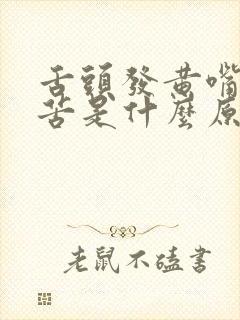 舌頭發黃嘴
苦是什麼原
老鼠不嗑書